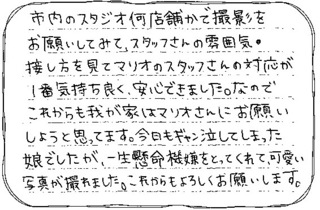 市内のスタジオ何店舗かで撮影を
お願いしてみて、スタッフさんの雰囲気・
接し方を見てマリオのスタッフさんの対応が
1番気持ち良く、安心できました。なので
これからも我が家はマリオさんにお願い
しようと思ってます。今日もギャン泣してしまった
娘でしたが、一生懸命機嫌をとってくれて、可愛い
写真が撮れました。これからもよろしくお願いします。